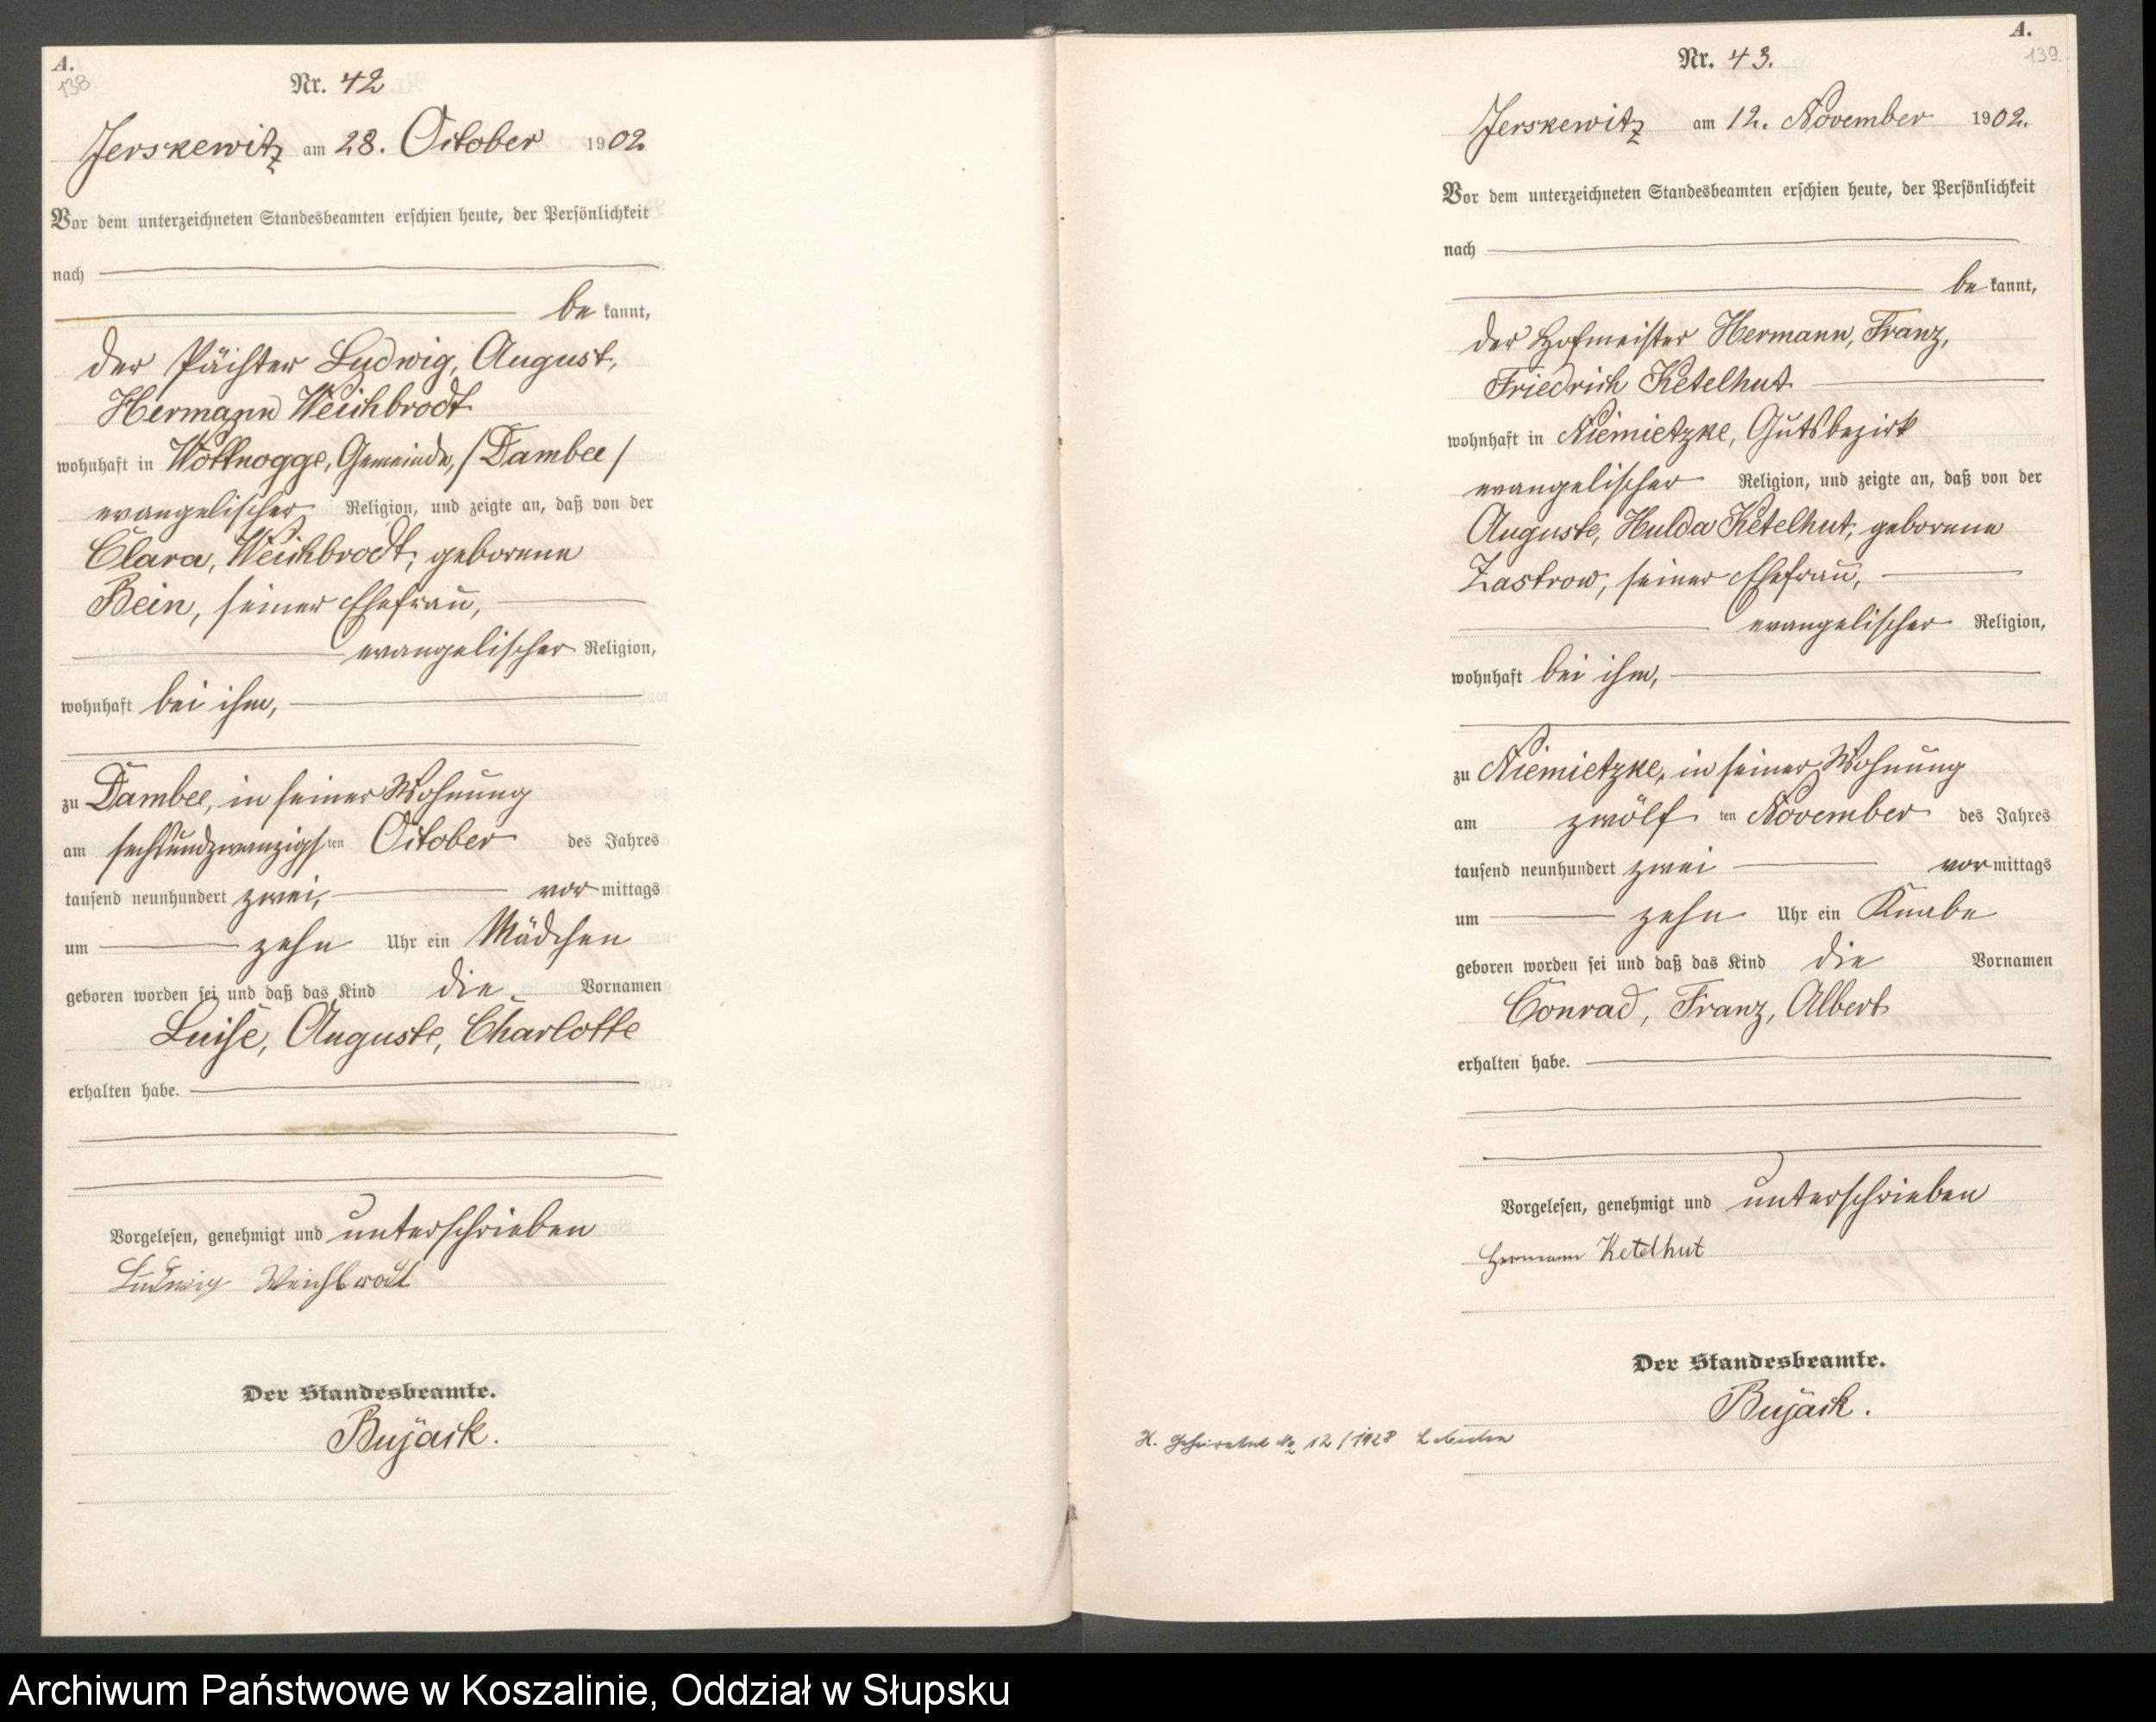 A.
138
Nr. 42
Jerskewitz am 28. October 1902
Vor dem unterzeichneten Standesbeamten erschien heute, der Persönlichkeit
nach
be kannt,
der Pächter Ludwig, August,
Hermann Weichbrodt
wohnhaft in Wottnogge, Gemeinde, / Dambee /
evangelischer Religion, und zeigte an, daß von der
Clara, Weichbrodt, geborene
Bein, seiner Ehefrau,
evangelischer Religion,
wohnhaft bei ihm,
zu Dambee, in seiner Wohnung
am sechsundzwanzigsten October des Jahres
tausend neunhundert zwei, vor mittags
um zehn Uhr ein Mädchen
geboren worden sei und daß das Kind die Vornamen
Luise, Auguste, Charlotte
erhalten habe.
Vorgelesen, genehmigt und unterschrieben
Ludwig Weichbrodt
Der Standesbeamte.
Bujack.
A.
139.
Nr. 43.
Jerskewitz am 12. November 1902.
Vor dem unterzeichneten Standesbeamten erschien heute, der Persönlichkeit
nach
be kannt,
der Hofmeister Hermann, Franz,
Friedrich Ketelhut
wohnhaft in Niemietzke, Gutsbezirk
evangelischer Religion, und zeigte an, daß von der
Auguste, Hulda Ketelhut, geborene
Zastrow, seiner Ehefrau,
evangelischer Religion,
wohnhaft bei ihm,
zu Niemietzke, in seiner Wohnung
am zwölf ten November des Jahres
tausend neunhundert zwei vor mittags
um zehn Uhr ein Knabe
geboren worden sei und daß das Kind die Vornamen
Conrad, Franz, Albert
erhalten habe.
Vorgelesen, genehmigt und unterschrieben
Hermann Ketelhut
Der Standesbeamte.
Bujack.
No 12/1928
Archiwum Państwowe w Koszalinie, Oddział w Słupsku